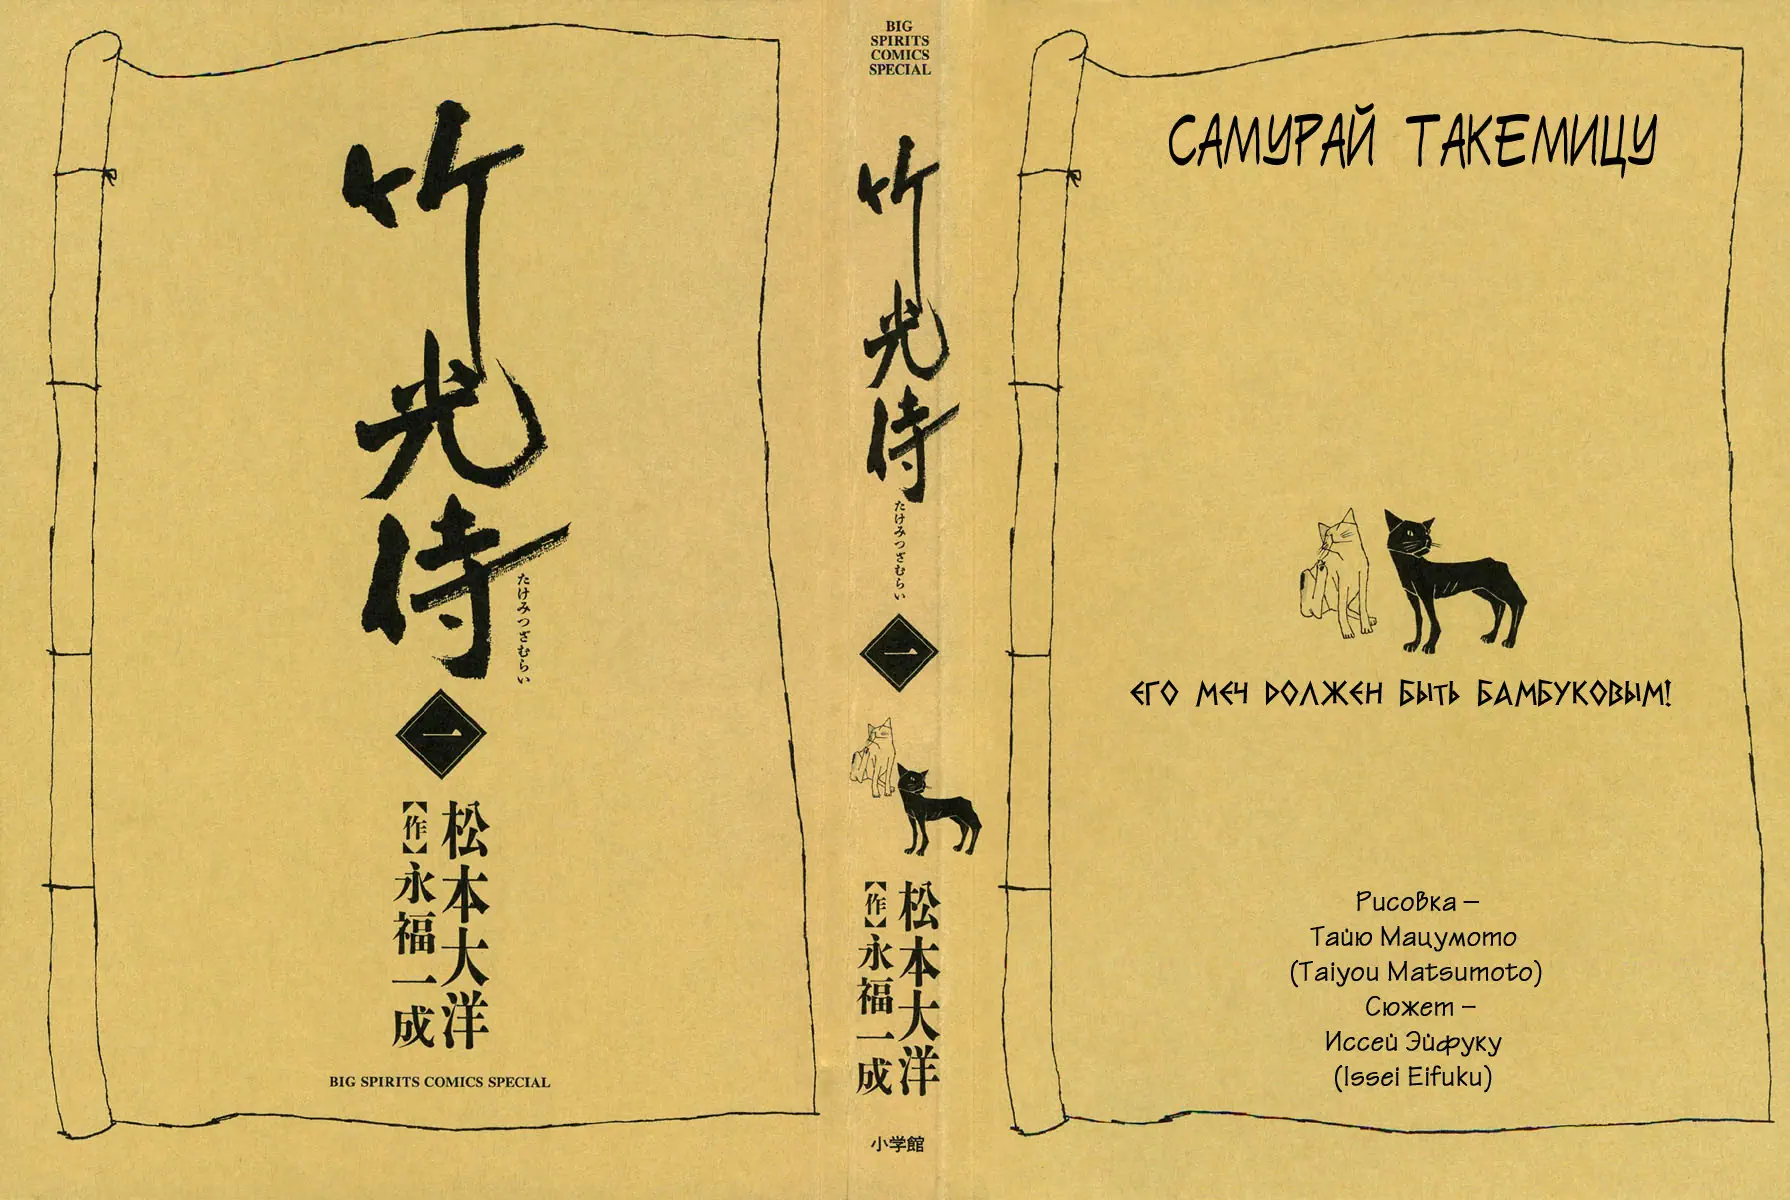 竹光侍
たけみつざむらい
一
松本大洋
【作】永福一成
BIG SPIRITS COMICS SPECIAL
BIG
SPIRITS
COMICS
SPECIAL
竹光侍
たけみつざむらい
一
松本大洋
【作】永福一成
小学館
САМУРАЙ ТАКЕМИЦУ
ЕГО МЕЧ ДОЛЖЕН БЫТЬ БАМБУКОВЫМ!
Рисовка –
Тайю Мацумото
(Taiyou Matsumoto)
Сюжет –
Иссей Эйфуку
(Issei Eifuku)